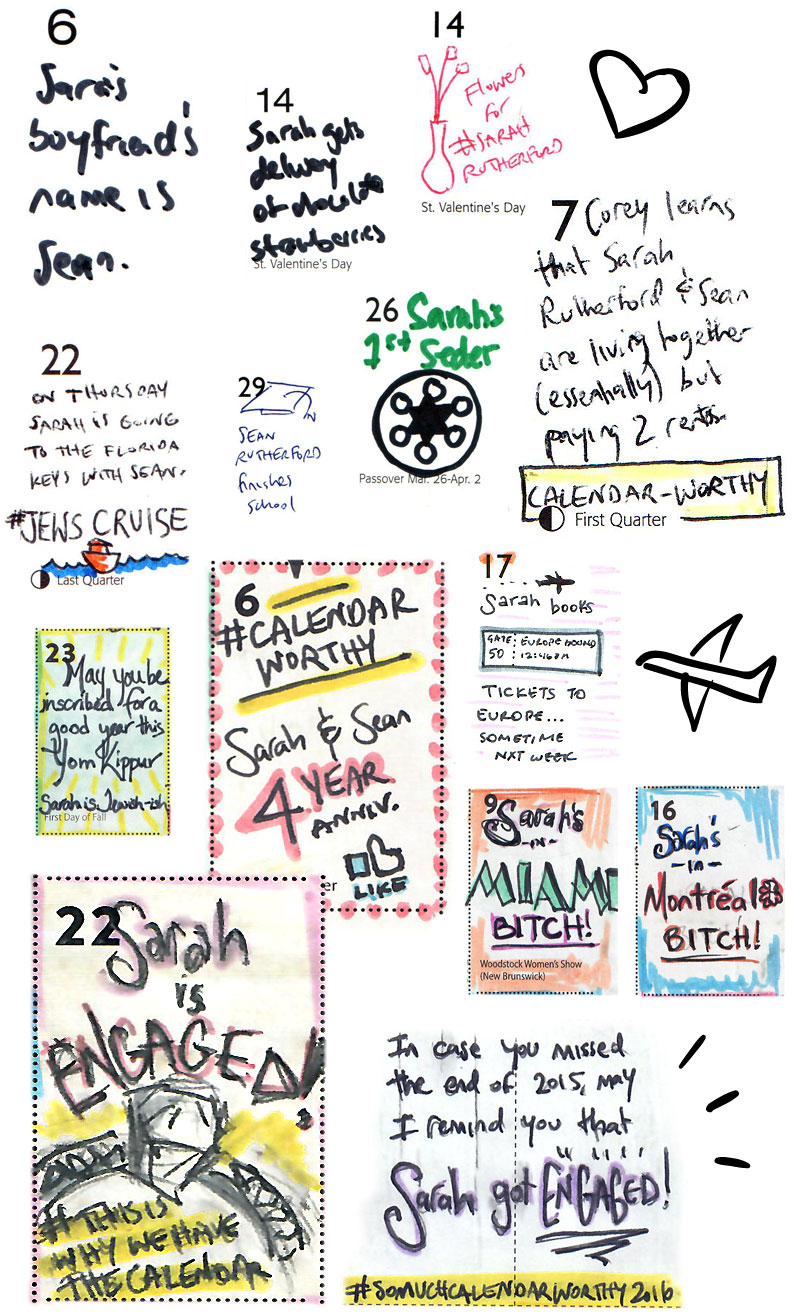 6
Sara's
boyfriend's
name is
Sean.
14
Sarah gets
delivery
of chocolate
strawberries
St. Valentine's Day
14
Flowers
for
#SARAH
RUTHERFORD
St. Valentine's Day
7 Corey learns
that Sarah
Rutherford & Sean
are living together
(essentially) but
paying 2 rents.
CALENDAR-WORTHY
First Quarter
22
ON THURSDAY
SARAH IS GOING
TO THE FLORIDA
KEYS WITH SEAN.
#JEWS CRUISE
Last Quarter
29
SEAN
RUTHERFORD
finishes
school
26 Sarah's
1st Seder
Passover Mar. 26-Apr. 2
23
May you be
inscribed for a
good year this
Yom Kippur
Sarah is Jewish-ish
First Day of Fall
6
#CALENDAR
WORTHY
Sarah & Sean
4 YEAR
ANNIV.
LIKE
er
17
Sarah books
GATE: EUROPE BOUND
50 : 12:46PM
TICKETS TO
EUROPE...
SOMETIME
NXT WEEK
9 Sarah's
-IN-
MIAMI
BITCH!
Woodstock Women's Show
(New Brunswick)
16
Sarah's
-IN-
Montréal
BITCH!
22 Sarah
is
ENGAGED!
#THIS IS
WHY WE HAVE
THE CALENDAR
In case you missed
the end of 2015, may
I remind you that
Sarah got ENGAGED!
#SOMUCHCALENDARWORTHY2016